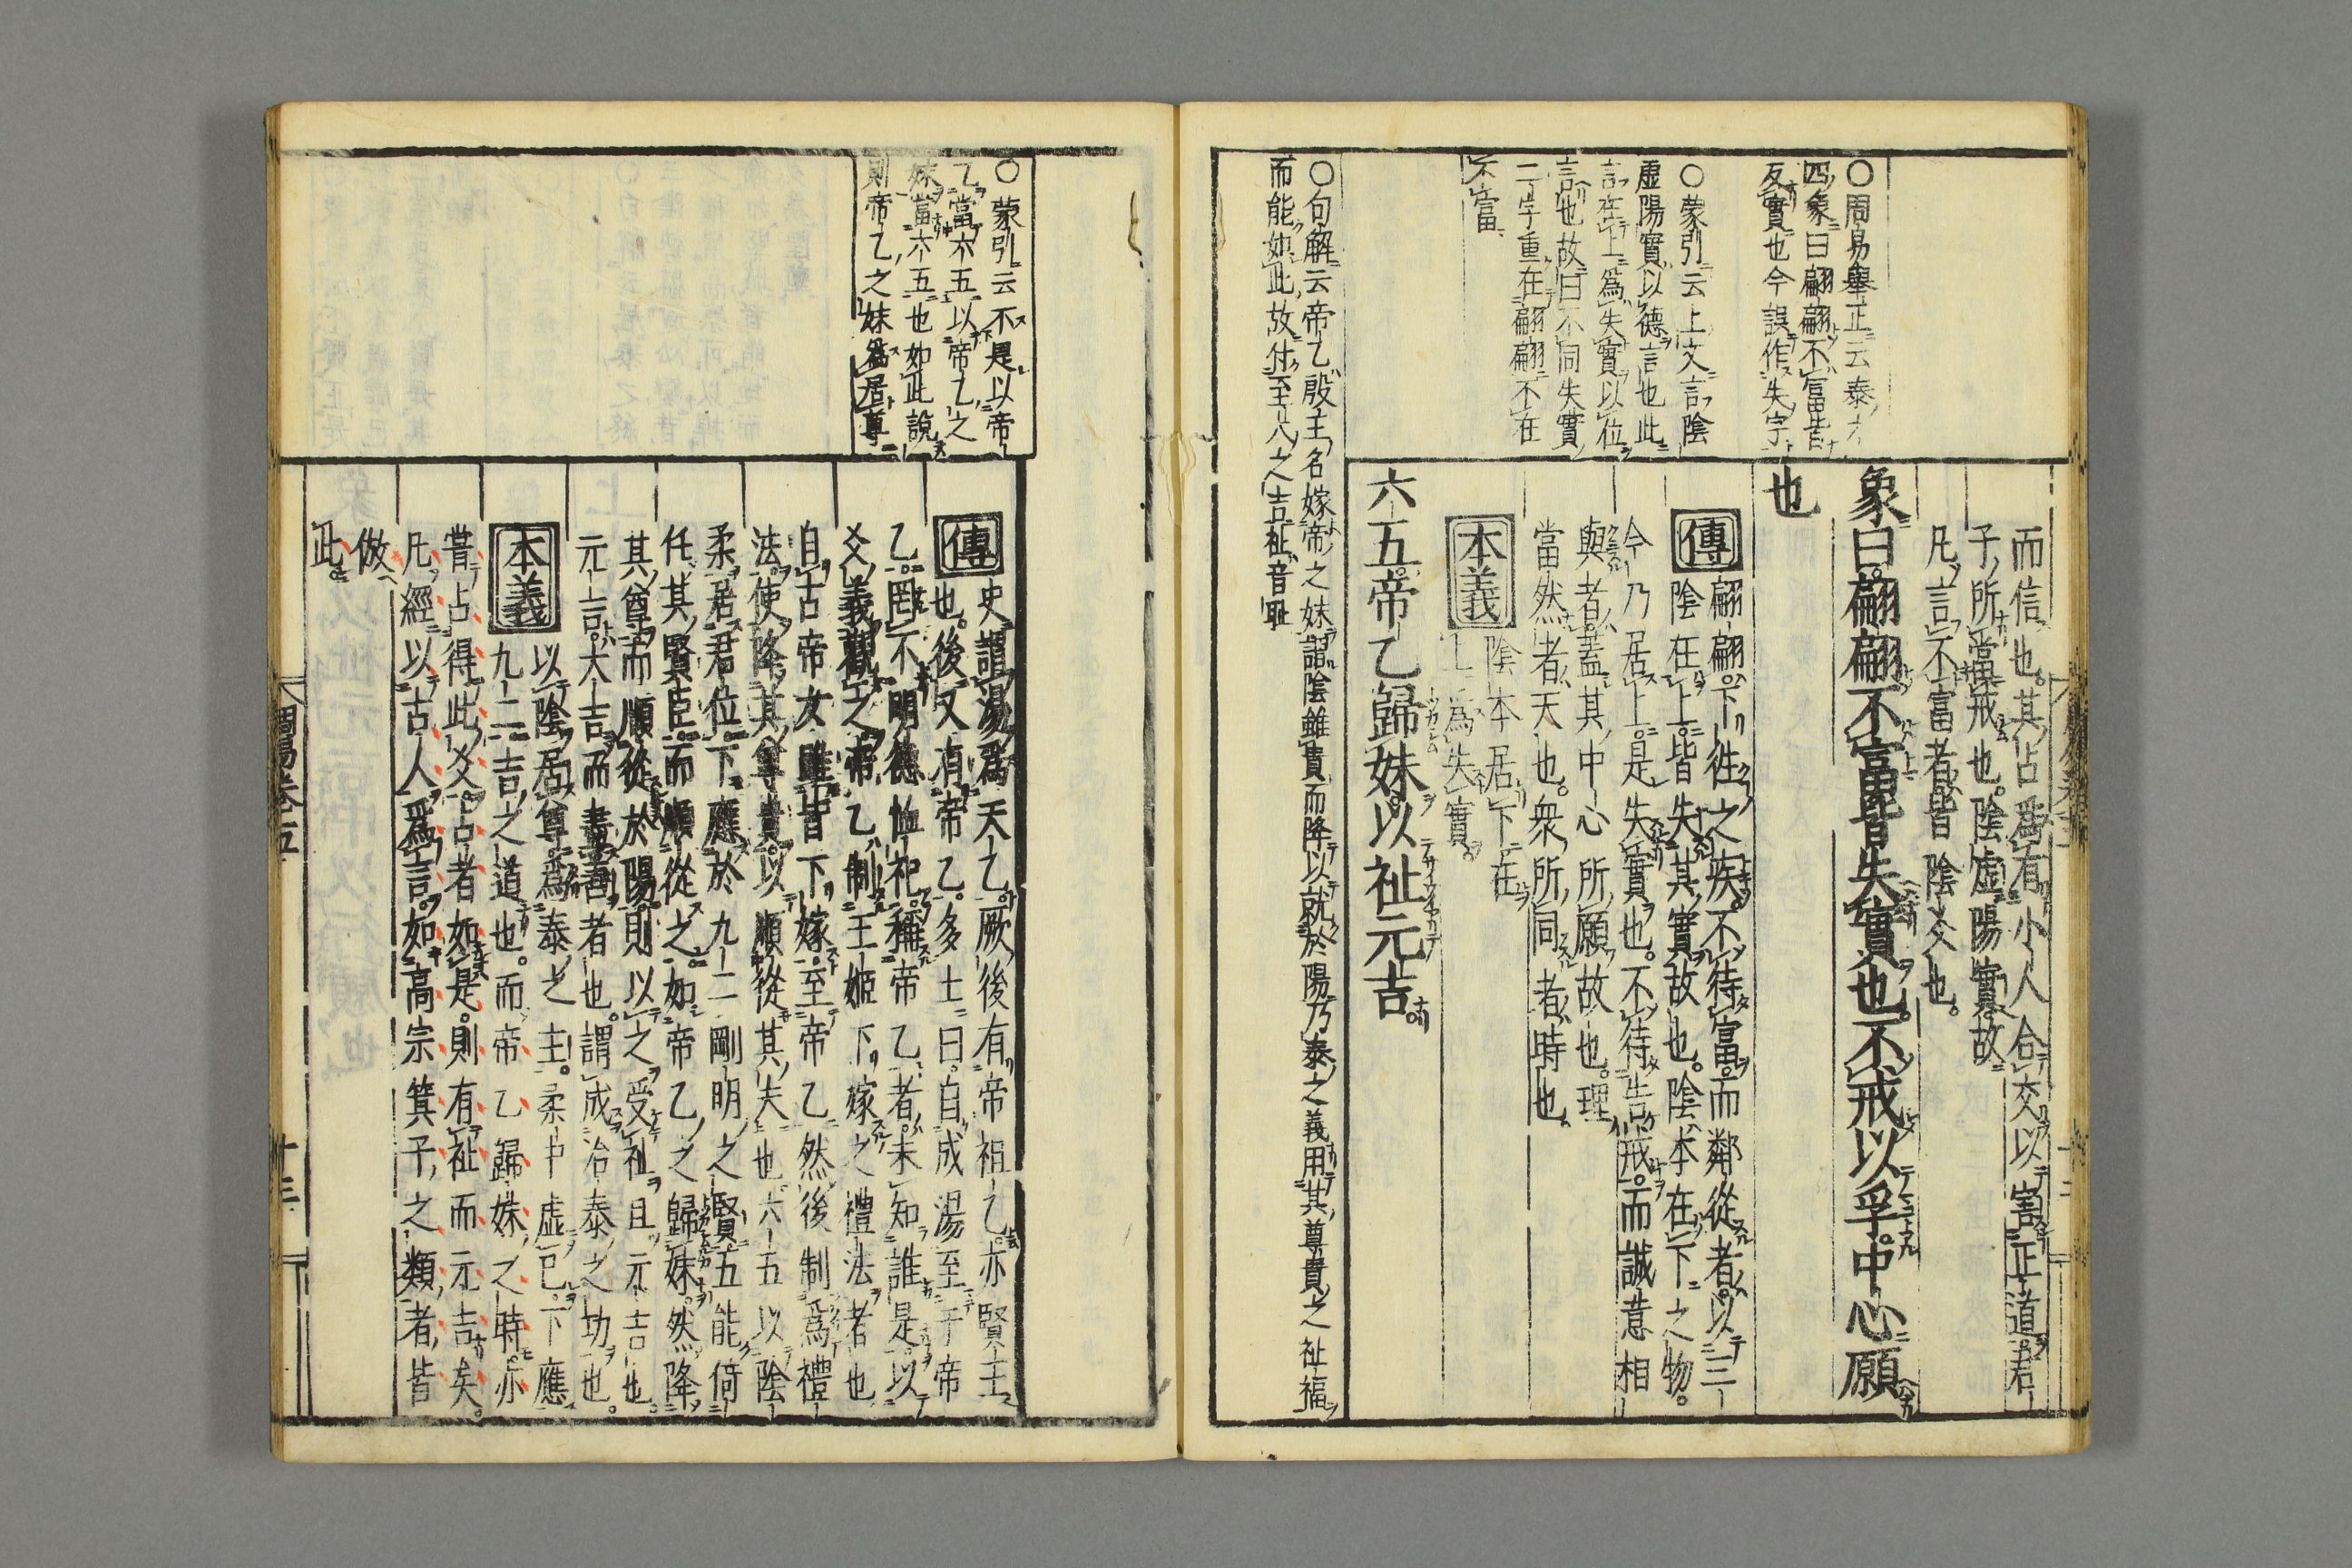 而信也。其占爲有小人合交以害正道君
子所當戒也。陰虛陽實。故
凡言不富者皆陰爻也。
象曰。翩翩不富。皆失實也。不戒以孚。中心願
也
傳
翩翩。下徃之疾。不待富。而鄰從者。以三
陰在上。皆失其實故也。陰本在下之物。
今乃居上。是失實也。不待告戒。而誠意相
與者。蓋其中心所願故也。理
當然者天也。衆所同者時也。
本義
陰本居下在
上爲失實。
六五。帝乙歸妹。以祉元吉。
〇周易擧正云泰六
四象曰翩翩不富皆
反實也今誤作失字
〇蒙引云上文言陰
虛陽實以德言也此
言在上爲失實以位
言也故曰不同失實
二字重在翩翩不在
不富
〇句解云帝乙殷王名嫁帝之妹謂陰雖貴而降以就於陽乃泰之義用其尊貴之祉福
而能如此故付至大之吉祉音耻
〇蒙引云不是以帝
乙當六五以帝乙之
妹當六五也如此說
則帝乙之妹爲居尊
傳
史謂湯爲天乙。厥後有帝祖乙。亦賢王
也。後又有帝乙。多士曰。自成湯至于帝
乙。罔不明德恤祀。稱帝乙者。未知誰是。以
爻義觀之帝乙制王姬下嫁之禮法者也
自古帝女雖皆下嫁。至帝乙然後制爲禮
法。使降其尊貴。以順從其夫也。六五以陰
柔居君位。下應於九二剛明之賢五能倚
任其賢臣。而順從之。如帝乙之歸妹。然降
其尊而順從於陽。則以之受祉。且元吉也。
元吉。大吉而盡善者也。謂成治泰之功也。
本義
以陰居尊爲泰之主。柔中虛己。下應
九二吉之道也。而帝乙歸妹之時。亦
嘗占得此爻。占者如是。則有祉而元吉矣。
凡經以古人爲言。如高宗箕子之類者。皆
倣
此。
周易卷五
十三